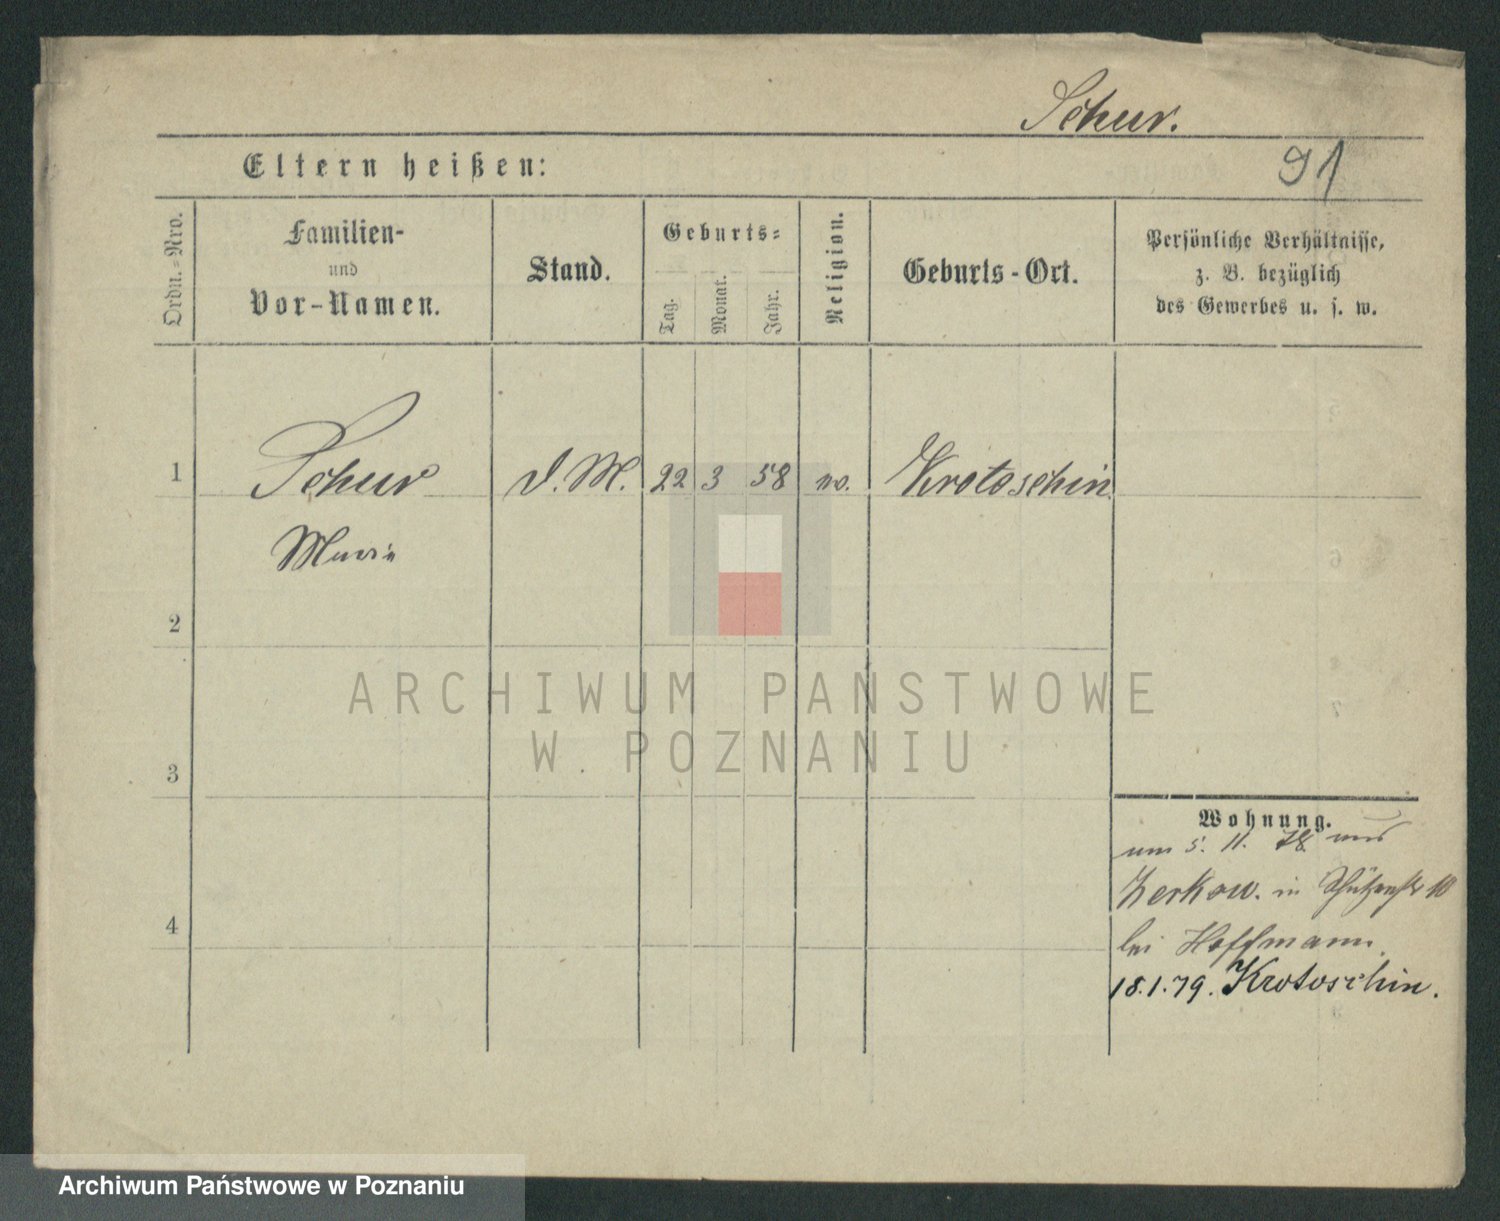 Schur.
Eltern heißen:
91
Ordn.-Nro.
Familien-
und
Vor-Namen.
Stand.
Geburts-
Tag.
Monat.
Jahr.
Religion.
Geburts-Ort.
Persönliche Verhältnisse,
z. B. bezüglich
des Gewerbes u. s. w.
1 Schur D. M. 22 3 58 Krotoschin
Marie
2
3
4
Wohnung.
5. 11. 78 aus
Zerkow. in Schützenstr 10
bei Hoffmann.
18.1.79. Krotoschin.
ARCHIWUM PAŃSTWOWE
W POZNANIU
Archiwum Państwowe w Poznaniu